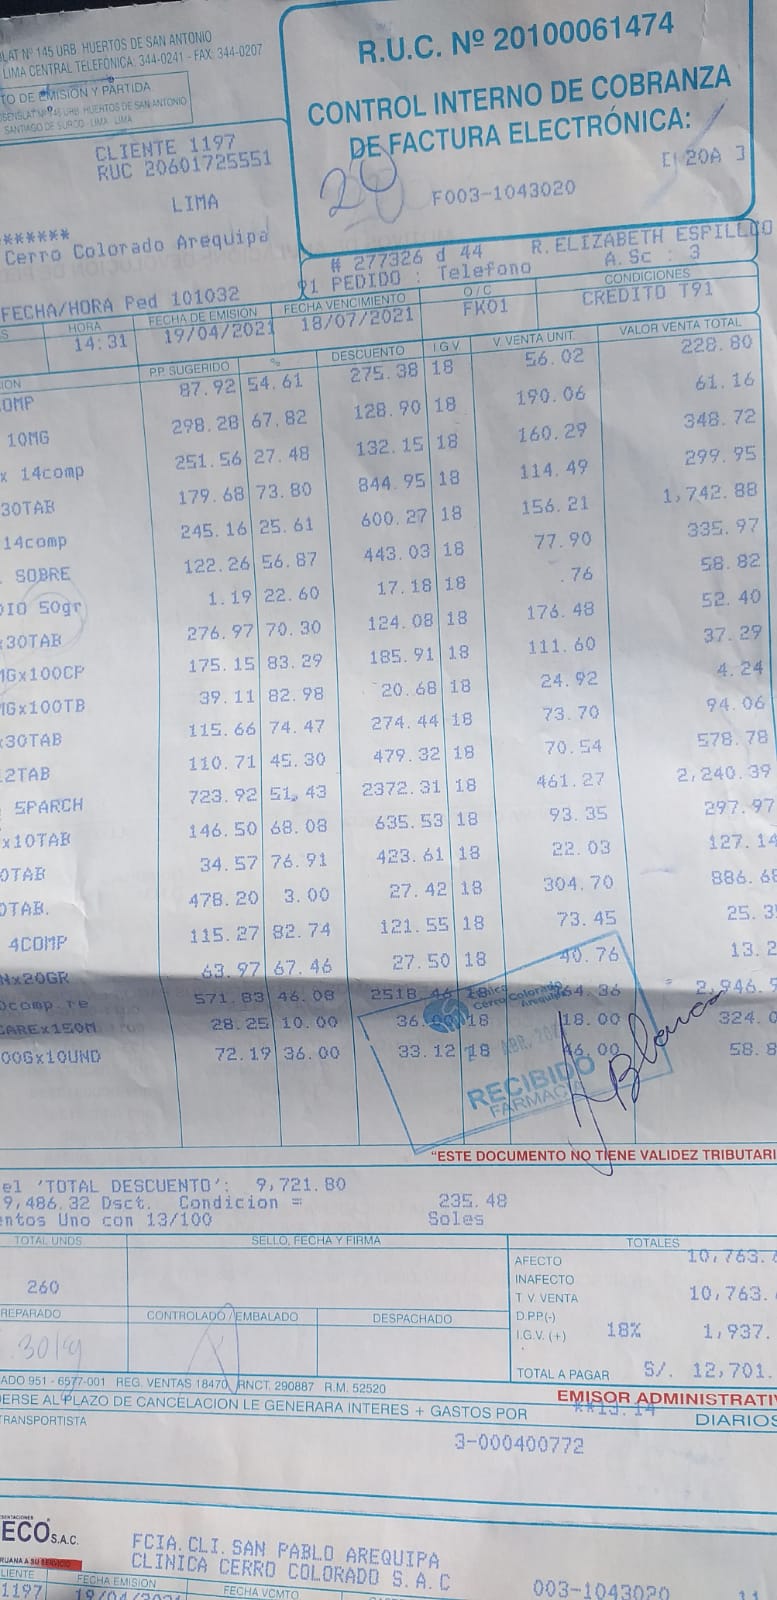 LAT Nº 145 URB. HUERTOS DE SAN ANTONIO
LIMA CENTRAL TELEFÓNICA: 344-0241 - FAX: 344-0207
TO DE EMISIÓN Y PARTIDA
Nº 145 URB. HUERTOS DE SAN ANTONIO
SANTIAGO DE SURCO - LIMA LIMA
R.U.C. Nº 20100061474
CONTROL INTERNO DE COBRANZA
DE FACTURA ELECTRÓNICA:
20
[ 20A ]
F003-1043020
CLIENTE 1197
RUC 20601725551
LIMA
*******
Cerro Colorado Arequipa
# 277326 d 44 R. ELIZABETH
PEDIDO : Telefono A.Sc : 3
FECHA/HORA Ped 101032
HORA FECHA DE EMISIÓN FECHA VENCIMIENTO O/C CONDICIONES
14:31 19/04/2021 18/07/2021 FK01 CREDITO T91
ION PP. SUGERIDO % DESCUENTO I.G.V V. VENTA UNIT. VALOR VENTA TOTAL
OMP 87.92 54.61 275.38 18 56.02 228.80
10MG 298.28 67.82 128.90 18 190.06 61.16
x 14comp 251.56 27.48 132.15 18 160.29 348.72
30TAB 179.68 73.80 844.95 18 114.49 299.95
14comp 245.16 25.61 600.27 18 156.21 1,742.88
SOBRE 122.26 56.87 443.03 18 77.90 335.97
DIO 50gr 1.19 22.60 17.18 18 .76 58.82
x30TAB 276.97 70.30 124.08 18 176.48 52.40
MGx100CP 175.15 83.29 185.91 18 111.60 37.29
MGx100TB 39.11 82.98 20.68 18 24.92 4.24
x30TAB 115.66 74.47 274.44 18 73.70 94.06
2TAB 110.71 45.30 479.32 18 70.54 578.78
5PARCH 723.92 51.43 2372.31 18 461.27 2,240.39
x10TAB 146.50 68.08 635.53 18 93.35 297.97
0TAB 34.57 76.91 423.61 18 22.03 127.14
0TAB. 478.20 3.00 27.42 18 304.70 886.68
4COMP 115.27 82.74 121.55 18 73.45 25.3
Nx20GR 63.97 67.46 27.50 18 40.76 13.2
comp.re 571.83 46.08 2518.46 18 364.36 2,946.9
CAREx150M 28.25 10.00 36.00 18 18.00 324.0
00Gx10UND 72.19 36.00 33.12 18 46.00 58.8
Cerro Colorado
Arequipa
ABR.
RECIBIDO
FARMACIA
Blanca
"ESTE DOCUMENTO NO TIENE VALIDEZ TRIBUTARI
el 'TOTAL DESCUENTO': 9,721.80
9,486.32 Dsct. Condicion = 235.48
entos Uno con 13/100 Soles
TOTAL UNDS SELLO, FECHA Y FIRMA TOTALES
260
AFECTO 10,763.
INAFECTO
T. V. VENTA 10,763.
D.PP.(-)
I.G.V. (+) 18% 1,937.
TOTAL A PAGAR S/. 12,701.
REPARADO CONTROLADO / EMBALADO DESPACHADO
ADO 951 - 6577-001 REG. VENTAS 18470, RNCT. 290887 R.M. 52520
EMISOR ADMINISTRATIV
DERSE AL PLAZO DE CANCELACION LE GENERARA INTERES + GASTOS POR **13.14 DIARIOS
TRANSPORTISTA
3-000400772
ECO S.A.C.
RUANA A SU SERVICIO
FCIA.CLI.SAN PABLO AREQUIPA
CLINICA CERRO COLORADO S.A.C
003-1043020
LIENTE FECHA EMISIÓN FECHA VCMTO
1197